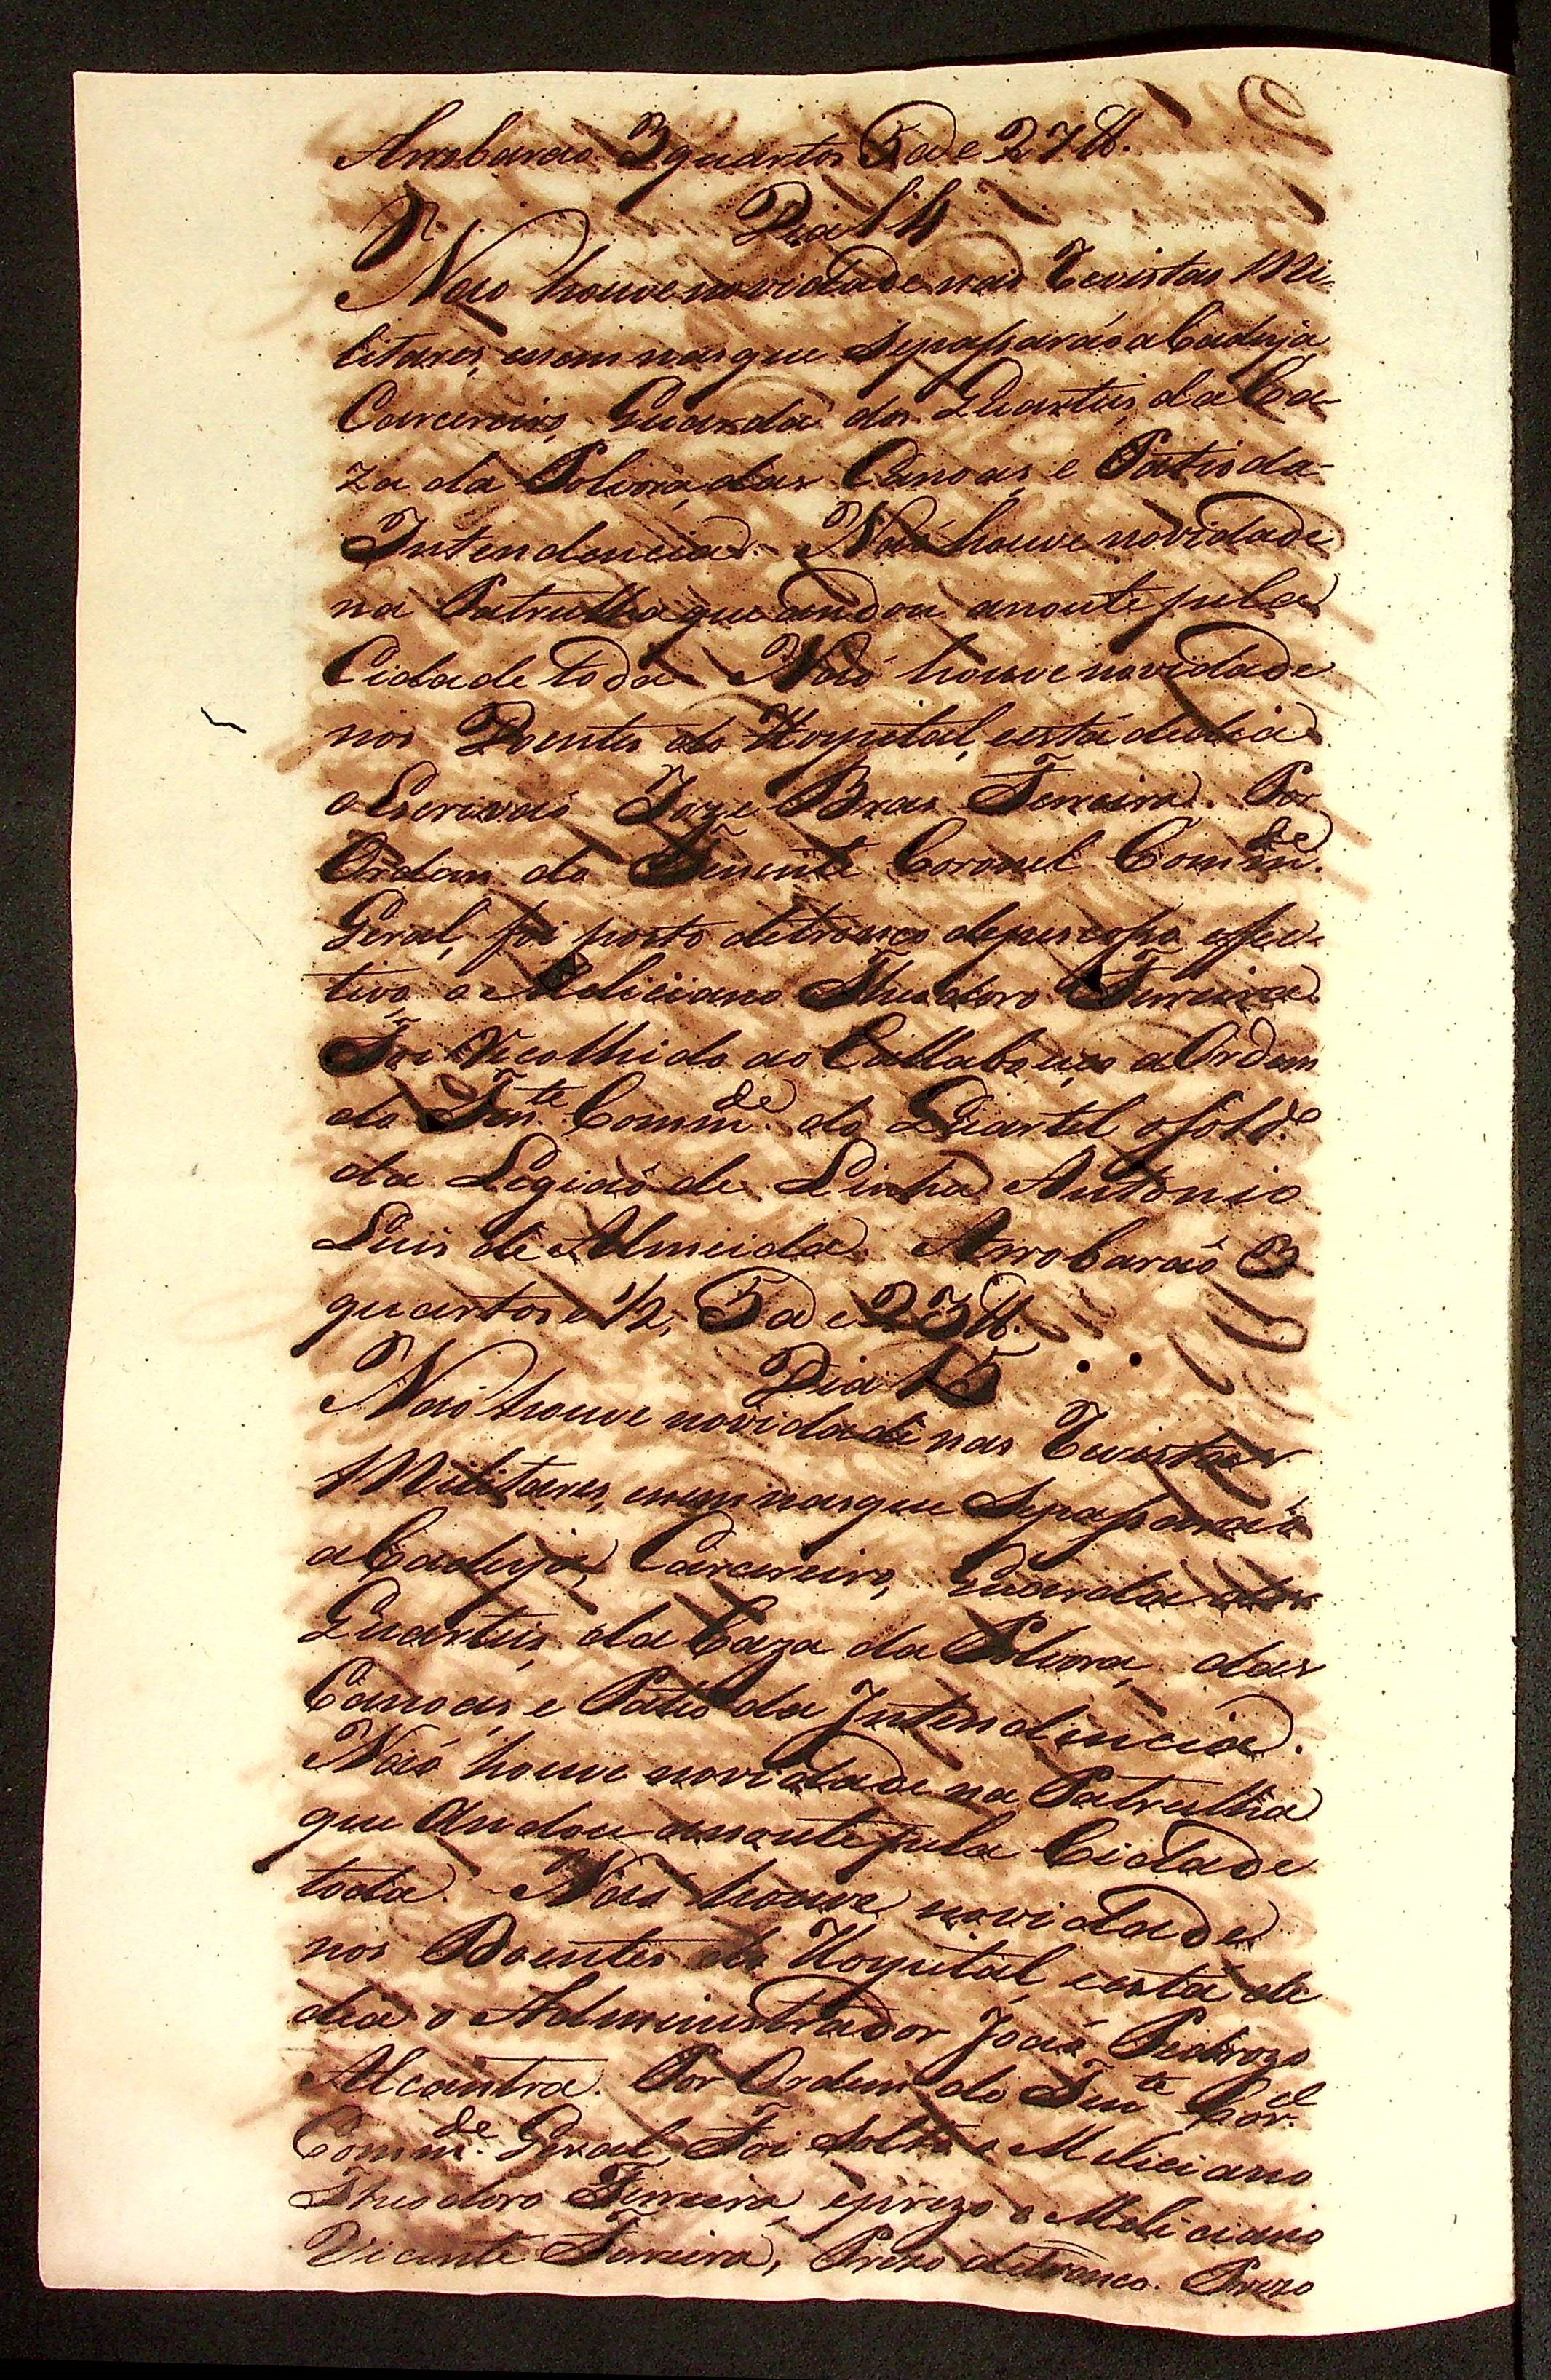 Arrobarao 3 quartos 5 a e 27 ℔.
Dia 14
Naõ houve novidade nas Revistas Mi-
litares, enem nas que Sepaſsaraõ a Cadeja,
Carcereiro, Guarda dos Quarteis, da Ca-
za da Polvora, das Canoas, e Patio da
Intendencia. Naõ houve novidade
na Patrulha que andou anoute pela
Cidade toda. Naõ houve novidade
nos Doentes do Hospital, eestá dedia
o Escrivaõ Joze Bras Ferreira. Por
Ordem do Tenente Coronel Comm.de
Geral, foi posto detronco depescoſso effec-
tivo, o Meliciano Theodoro Ferreira.
Foi Recolhido ao Callabouço a Ordem
do Ten.te Comm.de do Quartel o Sold.o
da Legiaõ de Linha Antonio
Luis de Almeida. Arrobaraõ 3
quartos e 1/2, 5 a e 23 ℔.
Dia 15
Naõ houve novidade nas Revistas
Militares, enem nas que Sepaſsaraõ
a Cadeja, Carcereiro, Guarda dos
Quarteis, da Caza da Polvora, das
Canoas e Patio da Intendencia.
Naõ houve novidade na Patrulha
que Andou anoute pela Cidade
toda. Naõ houve novidade
nos Doentes do Hospital, eestá de
dia o Administrador Joaõ Pedrozo
Alcantra. Por Ordem do Ten.te Cor.el
Comm.de Geral, Foi Solto o Miliciano
Theodoro Ferreira, eprezo o Meliciano
Vicente Ferreira, Prezo detronco. Prezo